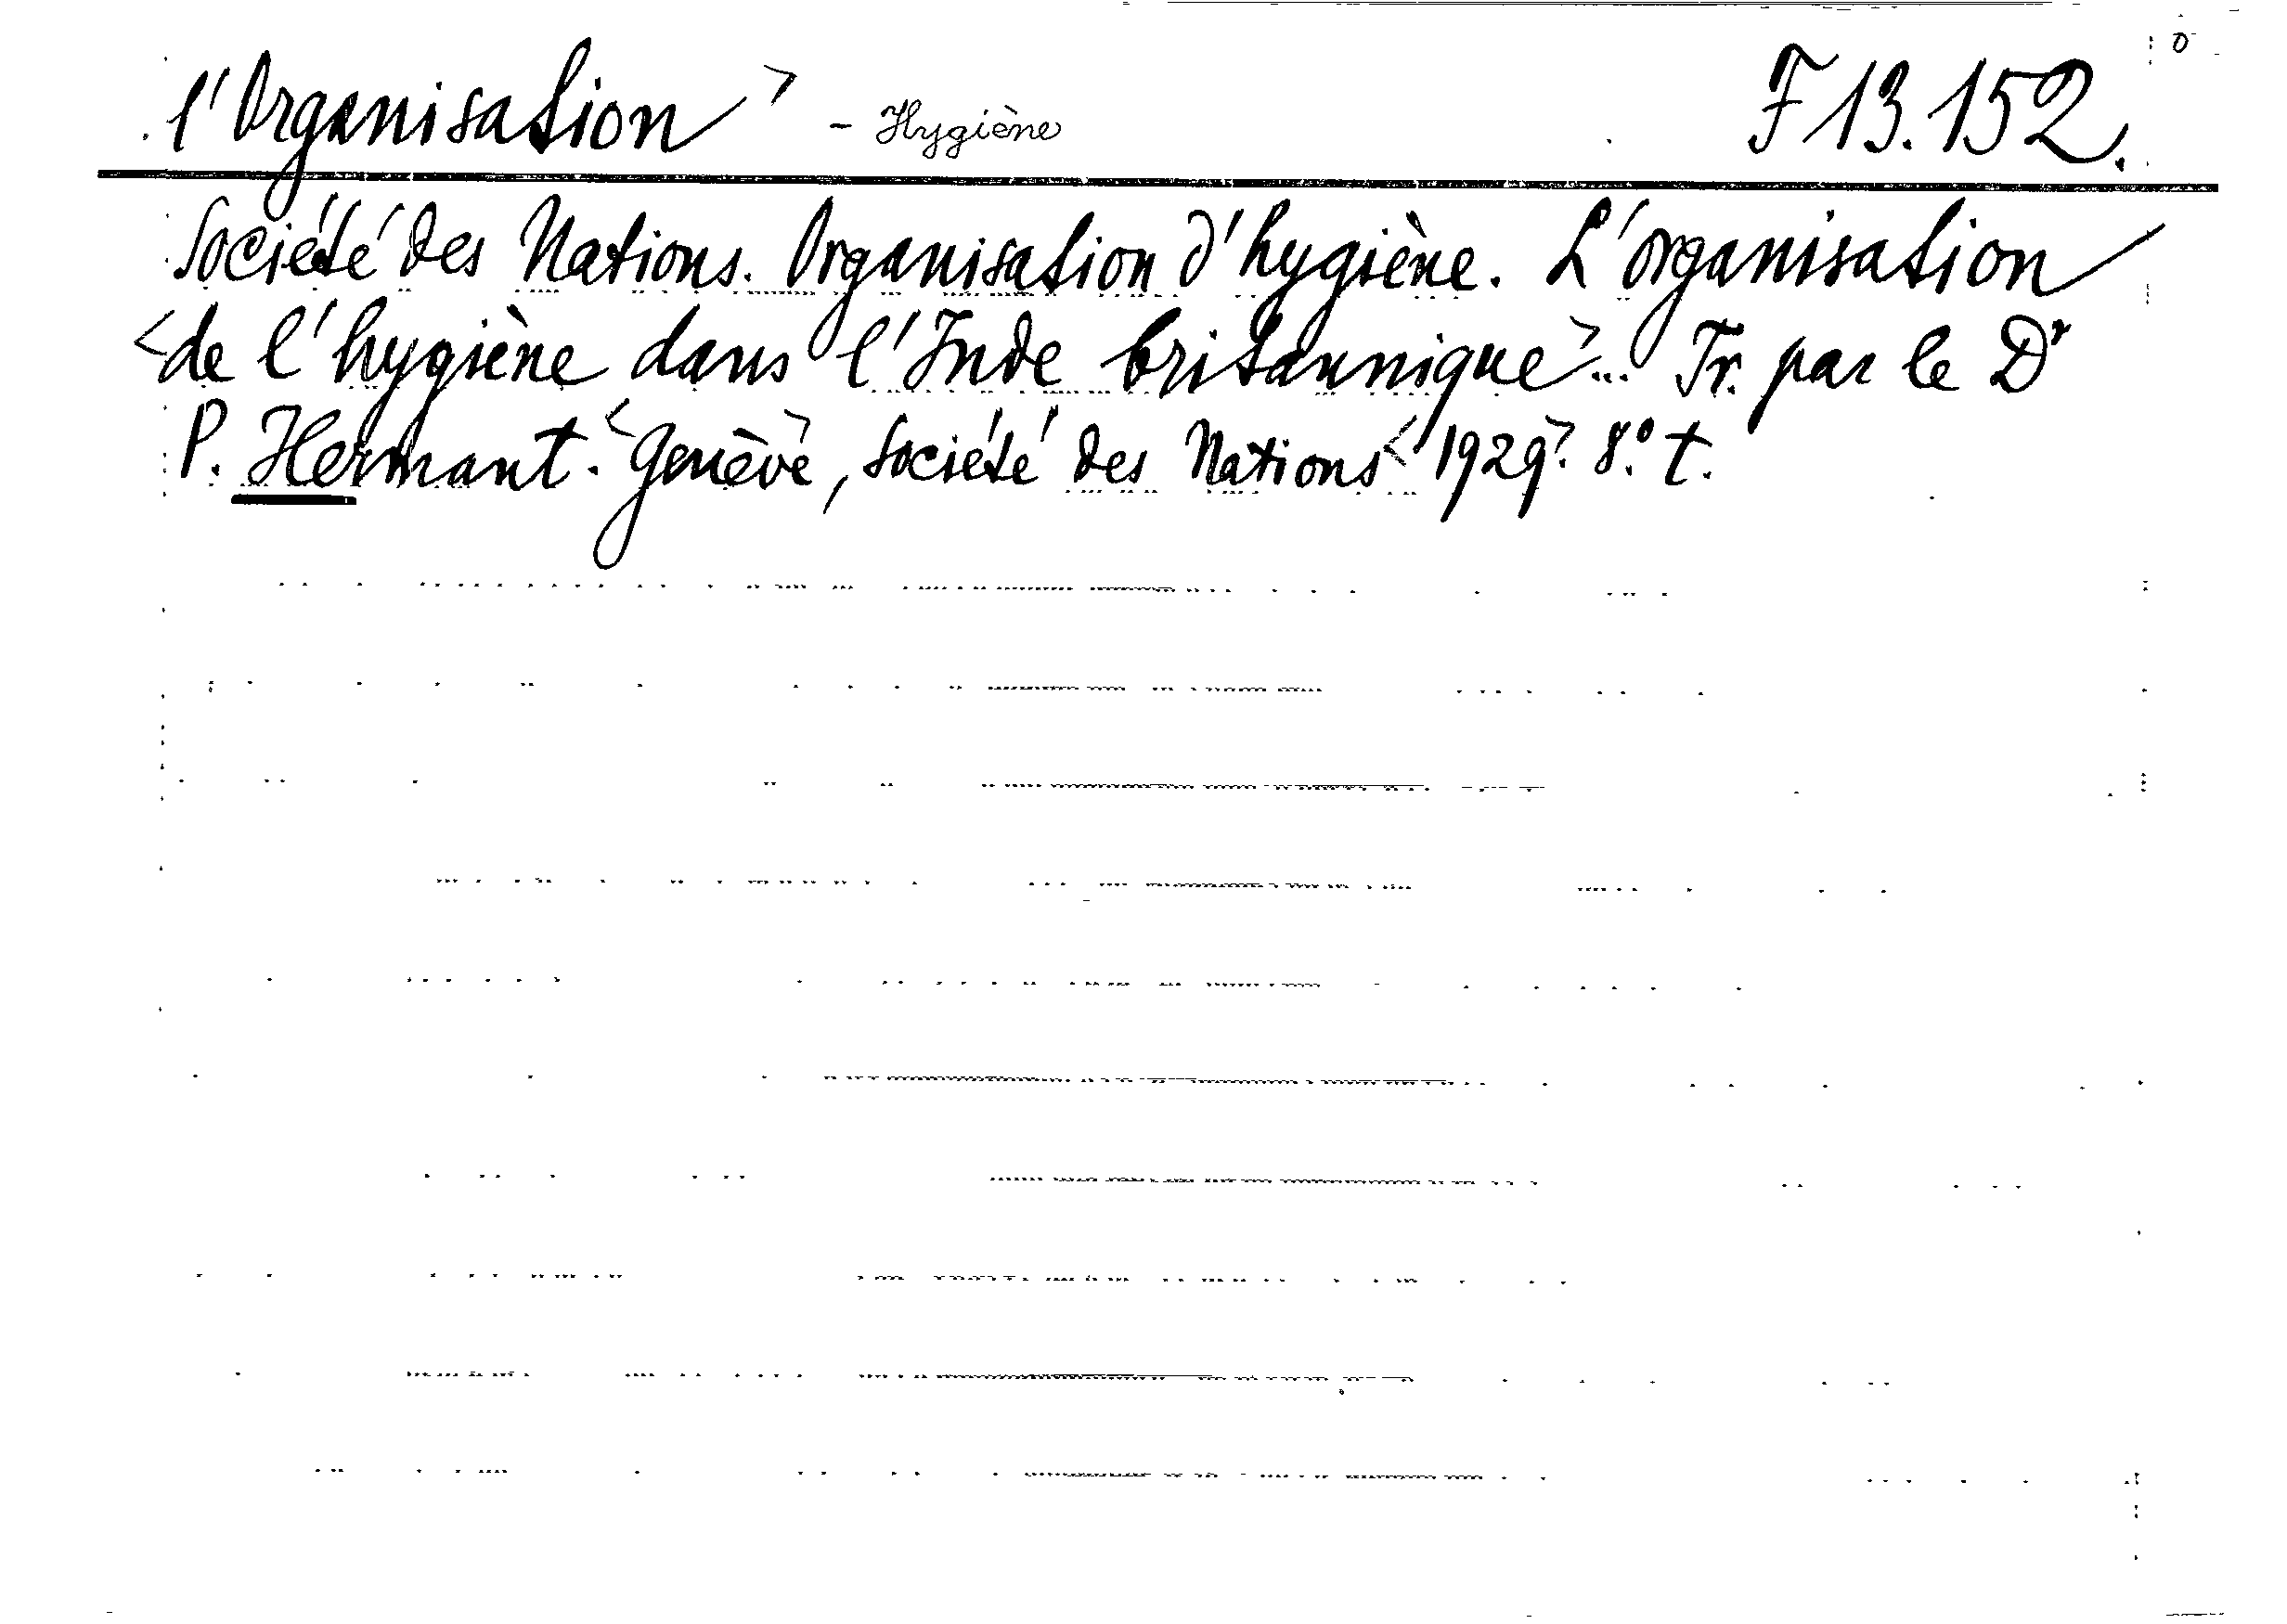 l'Organisation > - Hygiène F 13.152.
Société des Nations. Organisation d'hygiène. L'organisation
<de l'hygiène dans l'Inde britannique>... Tr. par le Dr
P. Hermant. <Genève>, Société des Nations <1929>. 8º. t.